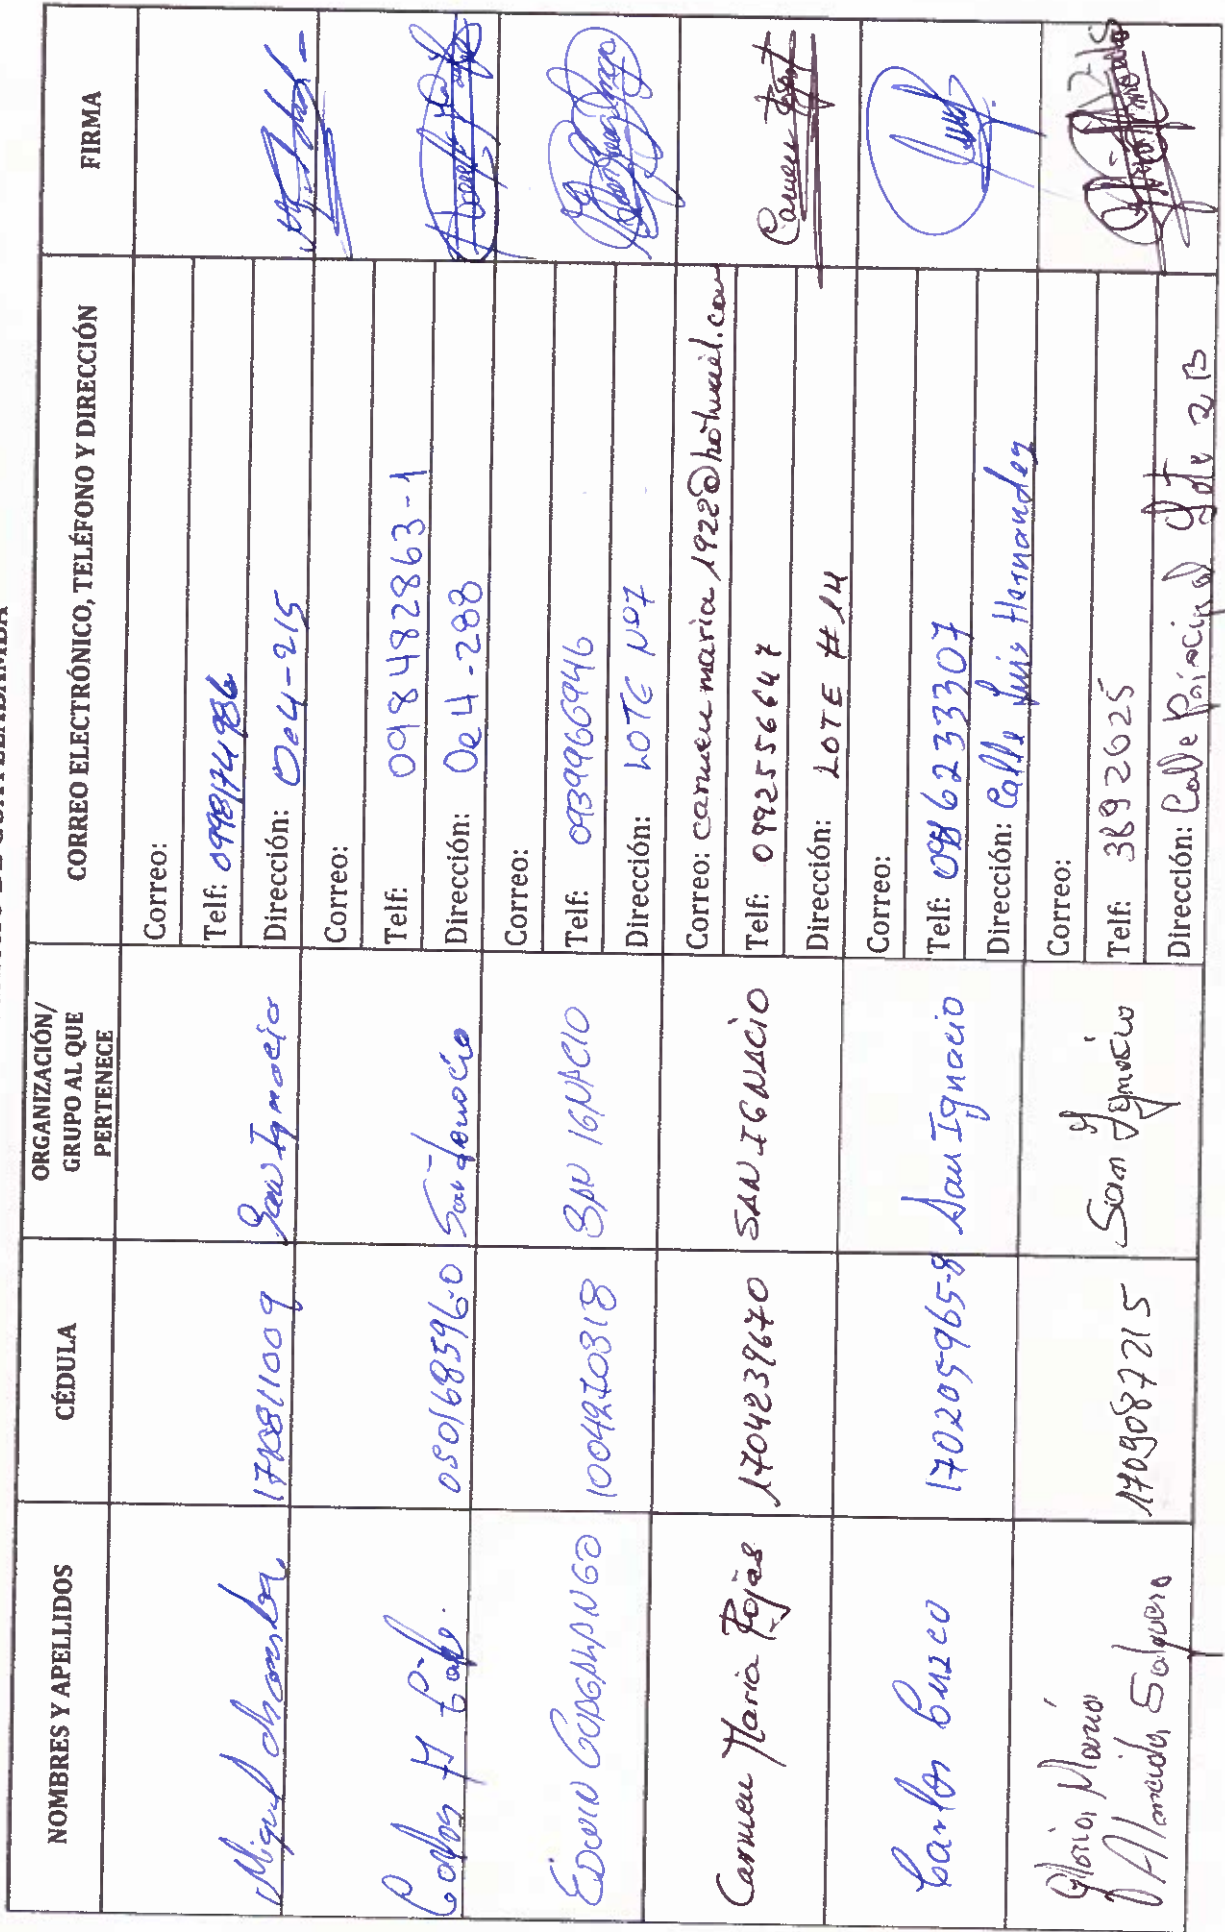 NOMBRES Y APELLIDOS
CÉDULA
ORGANIZACIÓN/
GRUPO AL QUE
PERTENECE
CORREO ELECTRÓNICO, TELÉFONO Y DIRECCIÓN
FIRMA
Miguel
San Ignacio
Correo:
Telf:
Dirección: Oe4-215
Carlos H
050168596-0
San Ignacio
Correo:
Telf: 098482863-1
Dirección: Oe4-288
EDWIN
SAN IGNACIO
Correo:
Telf: 0939966946
Dirección: LOTE Nº7
Carmen Maria Rojas
1704239670
SAN IGNACIO
Correo: carmen maria 1922@hotmail.com
Telf: 0992556647
Dirección: LOTE #14
Carmen
Carlos Cuzco
170205965-8
San Ignacio
Correo:
Telf:
Dirección: Calle Luis Hernandez
Gloria María
Almeida Salguero
1709087215
San Ignacio
Correo:
Telf: 3892625
Dirección: Calle Principal Lote 2B